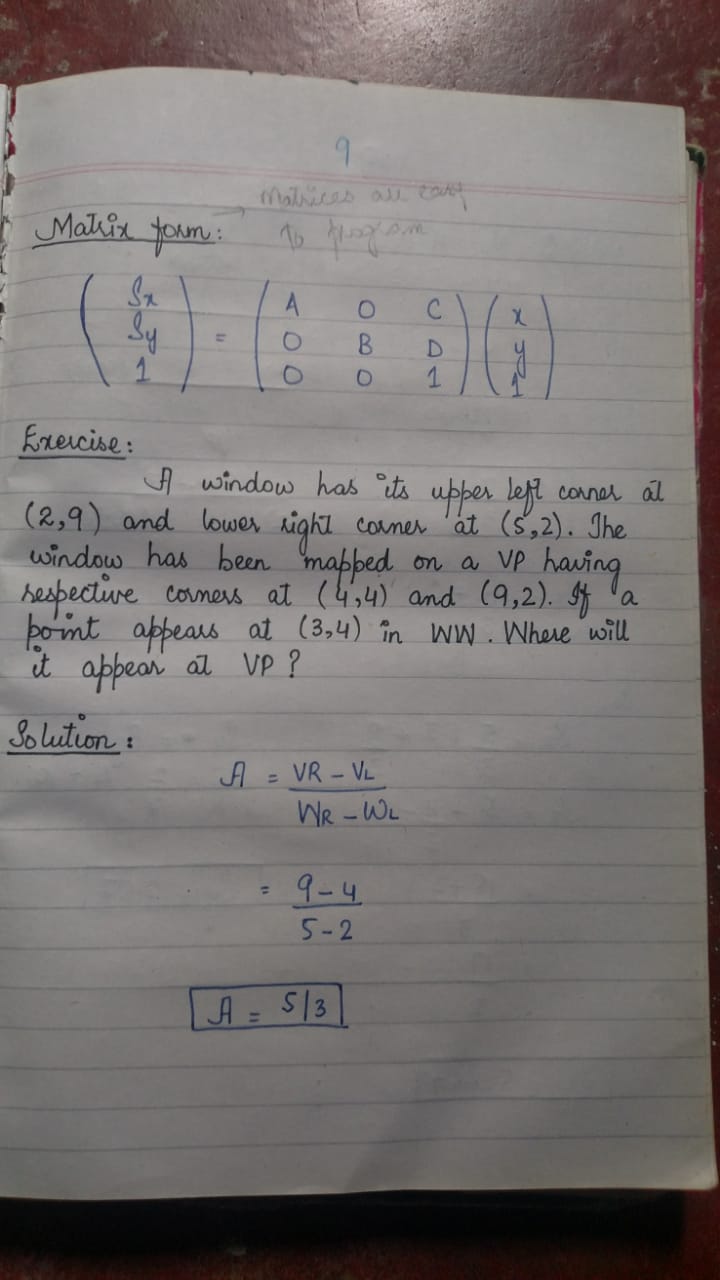 9
Matrices are easy
Matrix form: → To program
( Sx ) = ( A 0 C ) ( x )
( Sy ) ( 0 B D ) ( y )
( 1 ) ( 0 0 1 ) ( 1 )
Exercise:
A window has its upper left corner at
(2,9) and lower right corner at (5,2). The
window has been mapped on a VP having
respective corners at (4,4) and (9,2). If a
point appears at (3,4) in WW. Where will
it appear at VP?
Solution:
A = VR - VL
WR - WL
= 9-4
5-2
A = 5/3